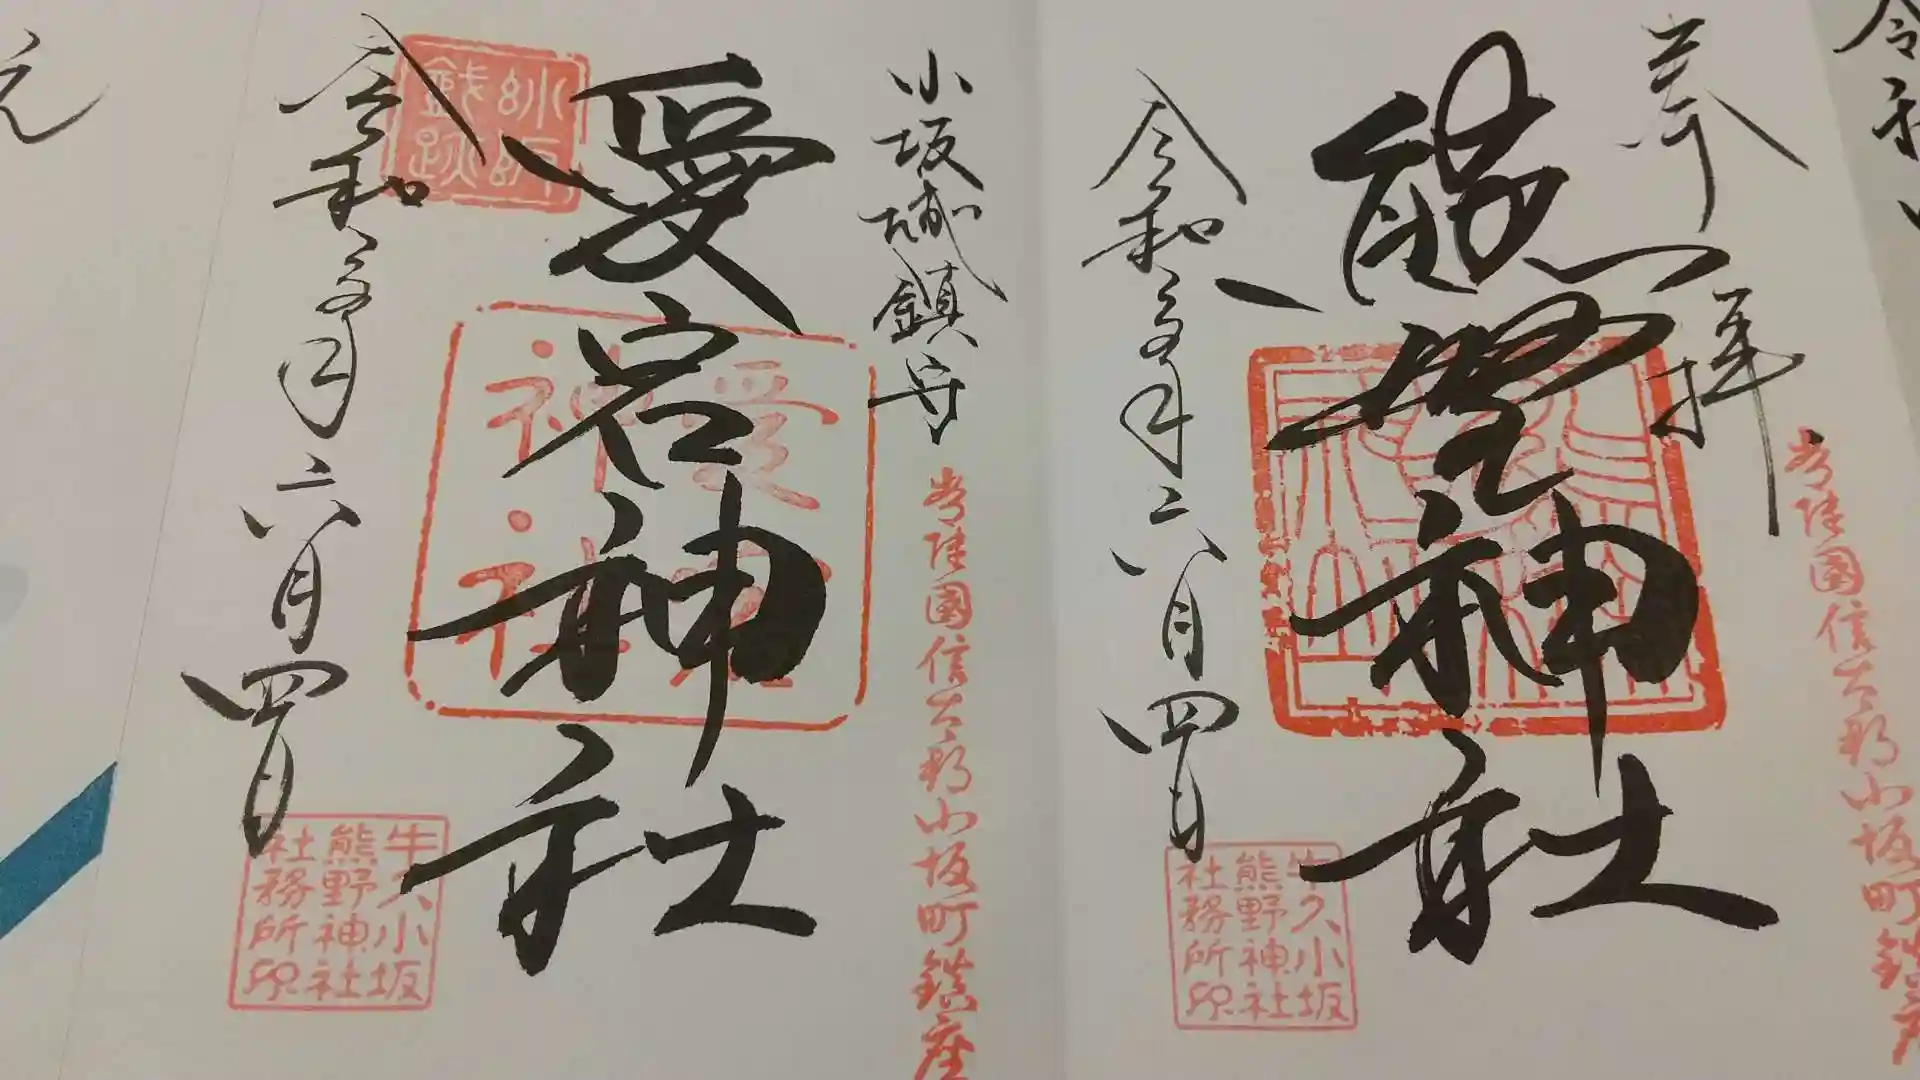 令和
奉拝
常陸國信太郡小坂町鎮座
熊野神社
牛久小坂
熊野神社
社務所印
令和
六月四日
小坂城鎮守
常陸國信太郡小坂町鎮座
愛宕神社
愛宕
神社
小坂
城跡
牛久小坂
熊野神社
社務所印
令和
六月四日
元